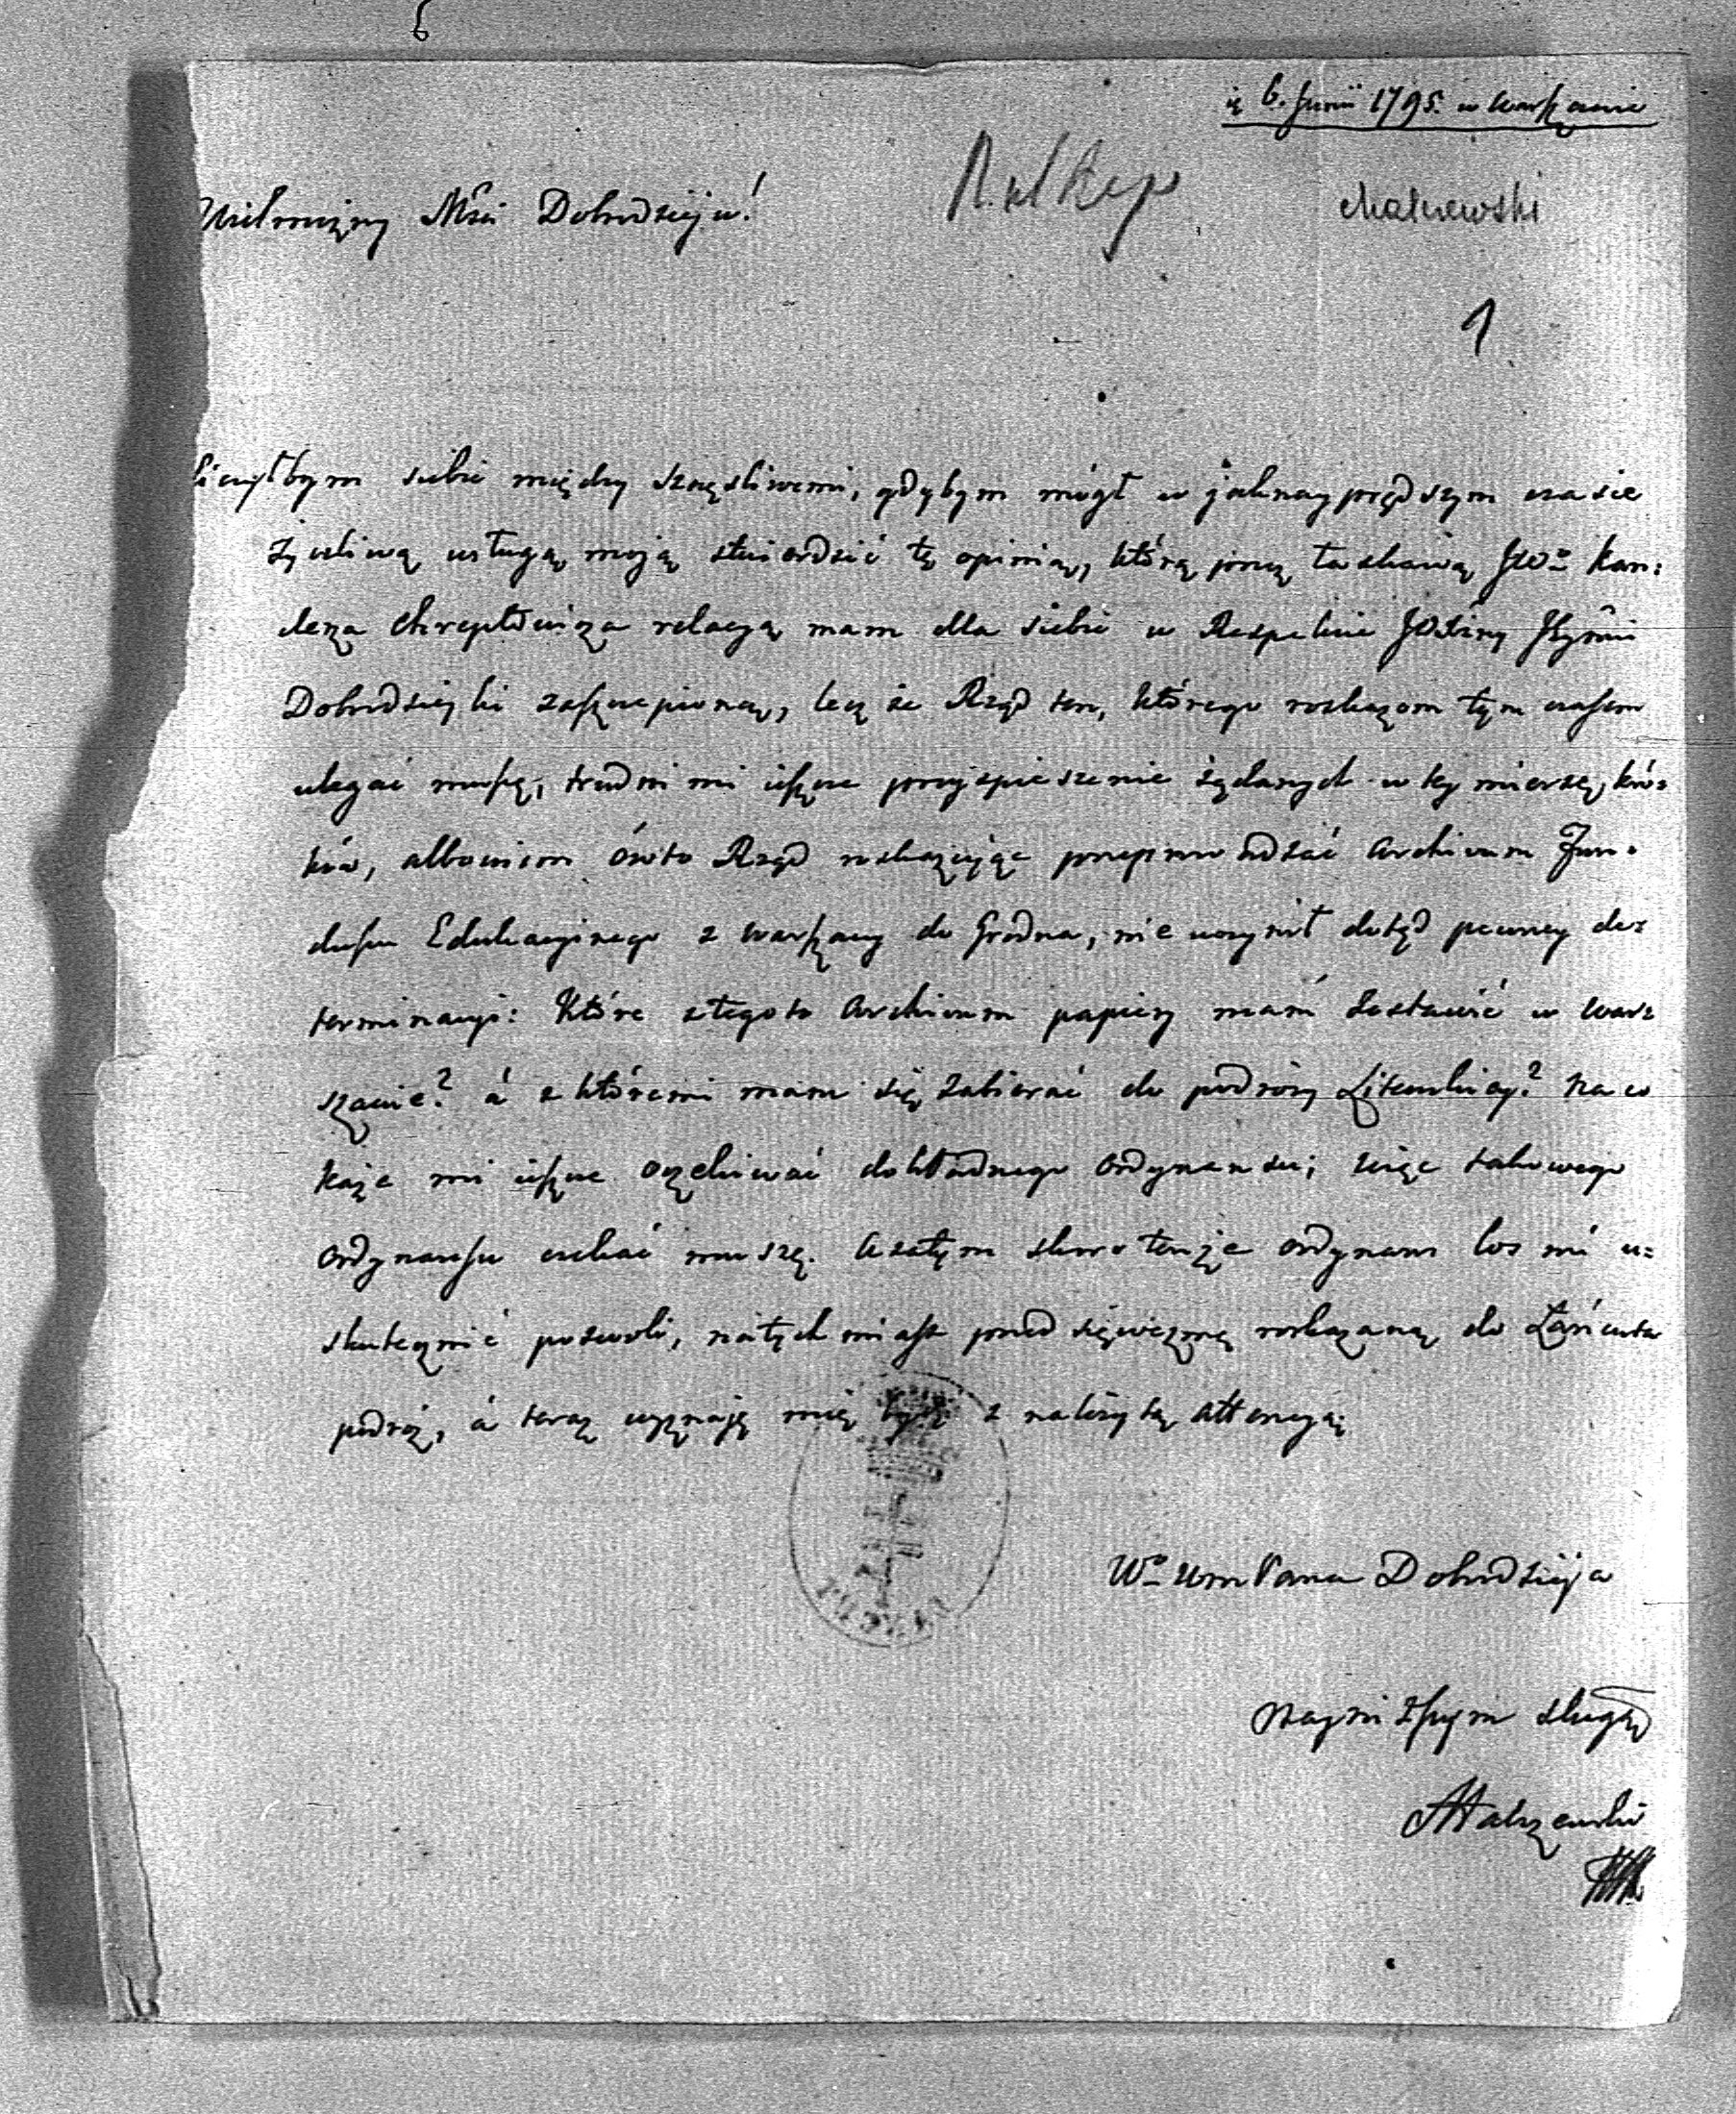 6. Junii 1795. w Warszawie
Malczewski
Wielmożny Mści Dobrodzieju!
1
liczyłbym siebie między szczęśliwemi, gdybym mógł w jaknayprędszym czasie
życzliwą usługą moją stwierdzić tę opinią, którą przez łaskawą JWo Kan:
clerza Chreptowicza relacyą mam dla siebie w Respekcie
Dobrodzieyki zaszczepioną, lecz że Rząd ten, którego rozkazom tym czasem
ulegać muszę, trudni mi jeszcze przyspieszenie żądanych w tey mierze kro:
ków, albowiem ówto Rząd rozkazując przeprowadzać Archivum Fun:
duszu Edukacyinego z Warszawy do Grodna, nie uczynił dotąd pewney de:
terminacyi: Które z tegoto Archivum papiery mam zostawić w War:
szawie? á z któremi mam się zabierać do podróży Litewskiey? Na co
każe mi jeszcze oczekiwać dokładnego Ordynansu; więc takowego
Ordynansu czekać muszę. A zatym skoro tenże Ordynans los mi u:
skutecznić pozwoli, natychmiast przedsięwezmę rozkazaną do Łańcuta
podróż, á teraz wyznaję mię być z należytą attencyą
Wo Wm Pana Dobrodzieja
Nayniższym sługą
Malczewski